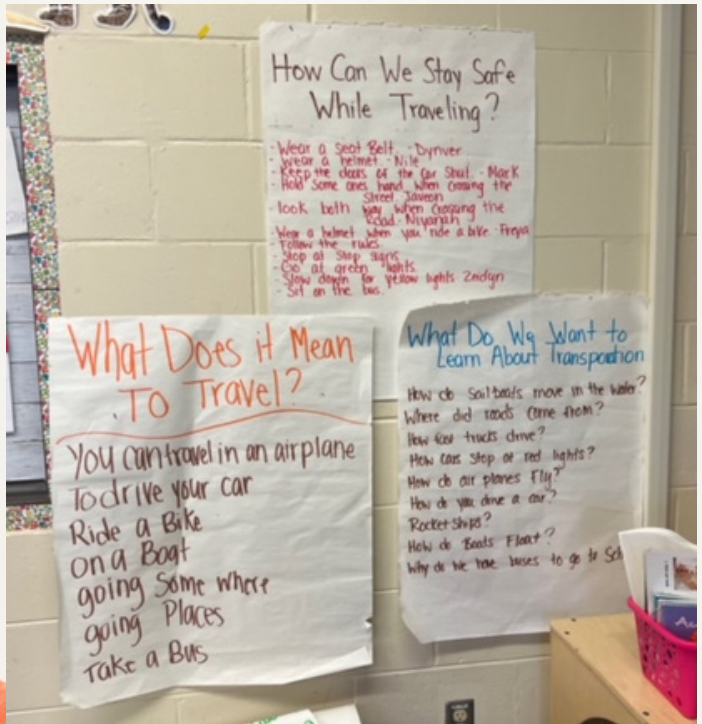 How Can We Stay Safe
While Traveling?
- Wear a Seat Belt. - Dynver
- Wear a helmet. - Nile
- Keep the doors of the car Shut. - Mark
- Hold Some ones hand when crossing the
Street. Javeon
look both way when Crossing the
Road - Niyanah
- Wear a helmet when you ride a bike - Freya
- Follow the rules.
- Stop at Stop signs
- Go at green lights.
- Slow down for yellow lights
- Sit on the bus.
What Does it Mean
To Travel?
You can travel in an airplane
To drive your car
Ride a Bike
on a Boat
going Some where
going Places
Take a Bus
What Do We Want to
Learn About
How do Sailboats move in the water?
Where did roads come from?
How trucks drive?
How cars stop at red lights?
How do air planes Fly?
How do you drive a car?
Rocket Ships?
How do Boats Float?
Why do we have buses to go to Sch